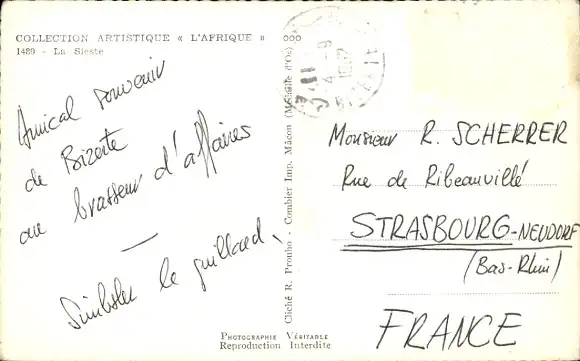 COLLECTION ARTISTIQUE « L'AFRIQUE »
1489 - La Sieste
Amical souvenir
de Bizerte
au brasseur d'affaires
le guillard
Cliché R. Prouho - Combier Imp. Mâcon (Médaille d'Or)
Monsieur R. SCHERRER
Rue de Ribeauvillé
STRASBOURG-NEUDORF
(Bas-Rhin)
FRANCE
PHOTOGRAPHIE VÉRITABLE
Reproduction Interdite